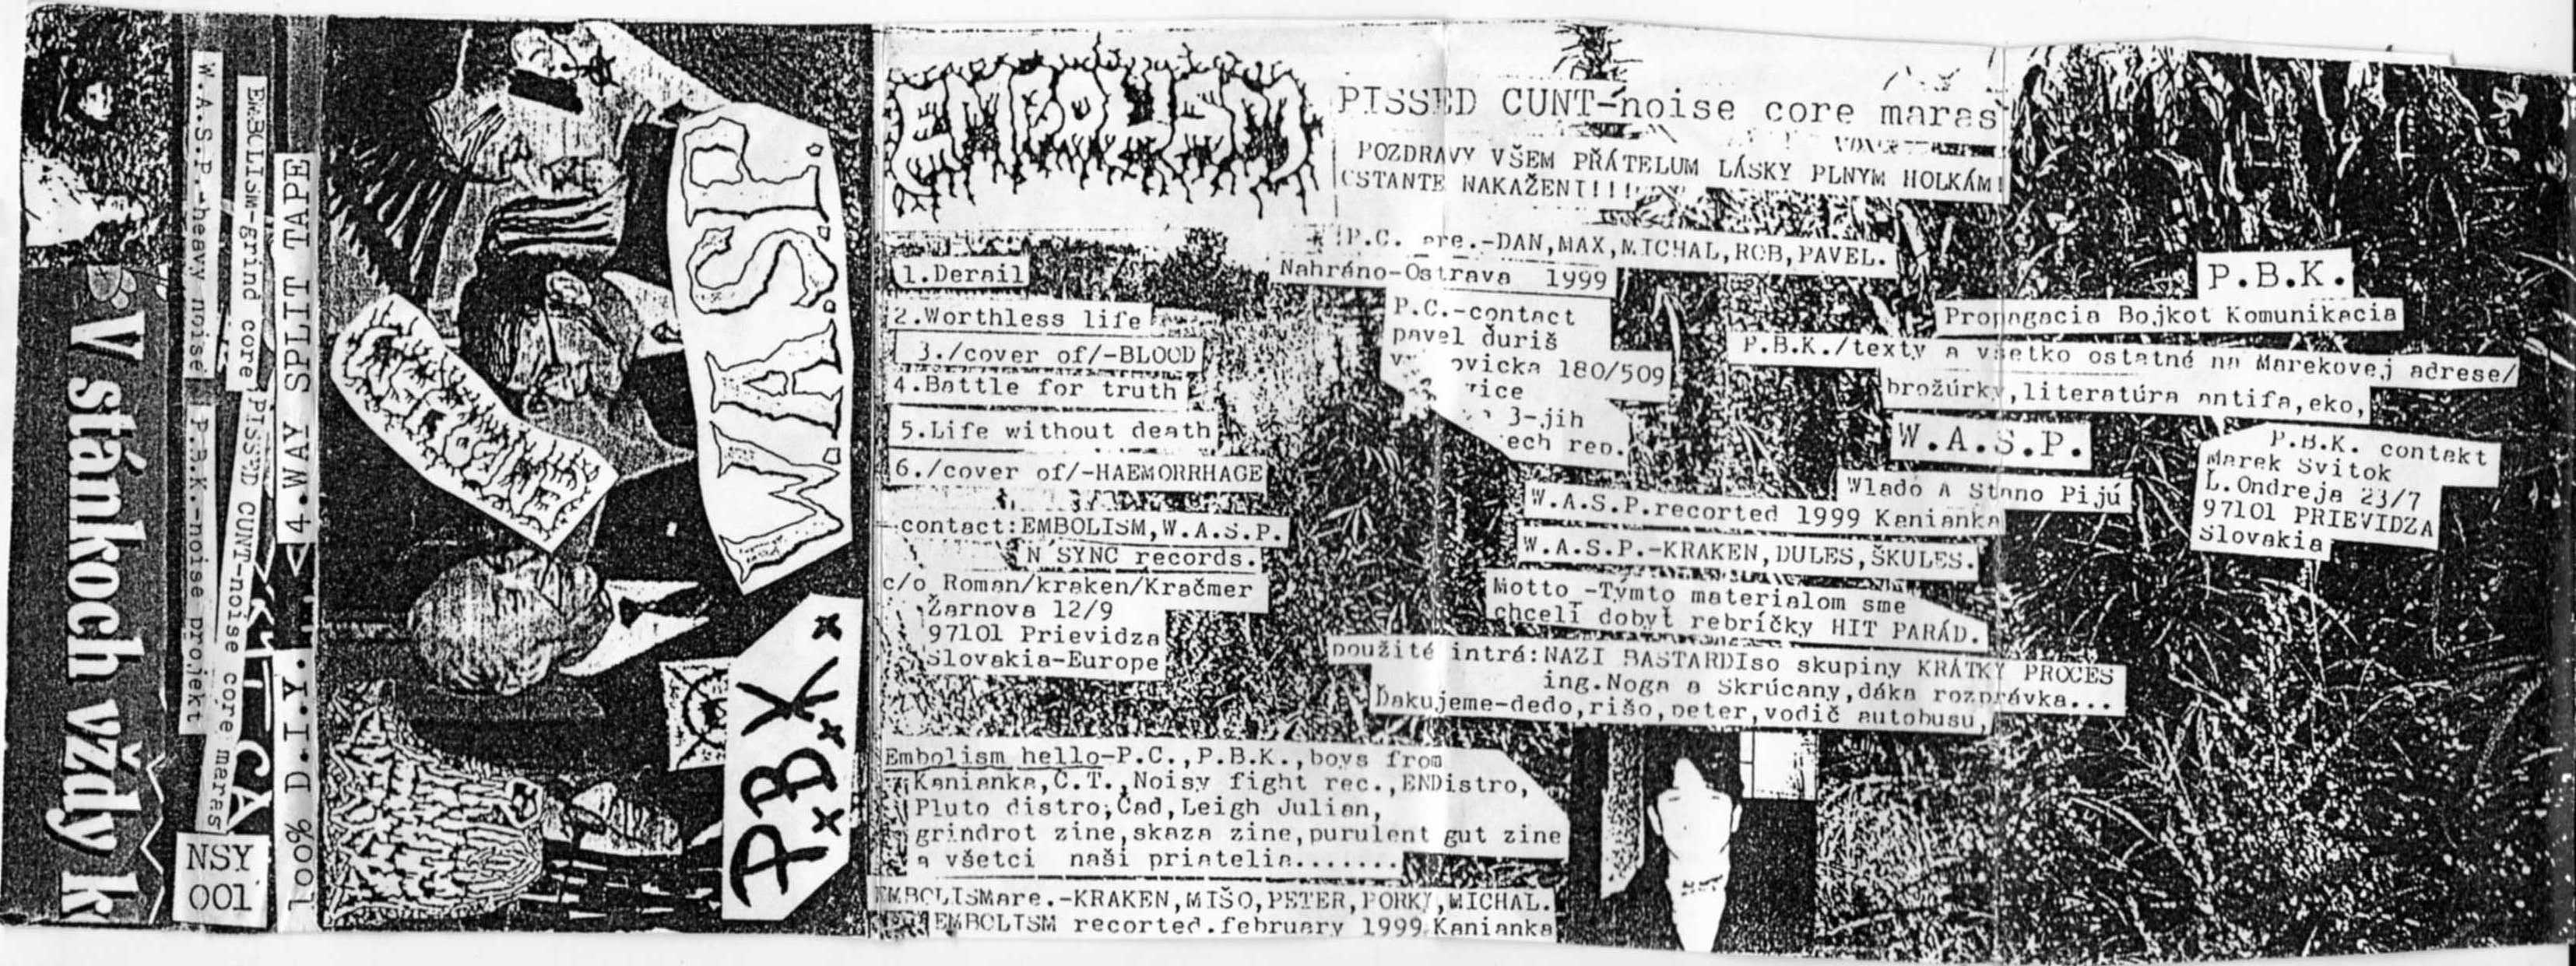 V stánkoch vždy k
W.A.S.P.-heavy noise
P.B.K.-noise projekt
EMBOLISM-grind core
PISSED CUNT-noise core maras
NSY
001
4.WAY SPLIT TAPE
100% D.I.Y.
W.A.S.P.
P.B.K.
EMBOLISM
1.Derail
2.Worthless life
3./cover of/-BLOOD
4.Battle for truth
5.Life without death
6./cover of/-HAEMORRHAGE
contact:EMBOLISM,W.A.S.P.
N SYNC records.
c/o Roman/kraken/Kračmer
Žarnova 12/9
97101 Prievidza
Slovakia-Europe
Embolism hello-P.C.,P.B.K.,boys from
Kanianka,C.T.,Noisy fight rec.,ENDistro,
Pluto distro,Čad,Leigh Julian,
grindrot zine,skaza zine,purulent gut zine
a všetci naši priatelia.......
EMBOLISMare.-KRAKEN,MIŠO,PETER,PORKY,MICHAL.
EMBOLISM recorted.february 1999 Kanianka
PISSED CUNT-noise core maras
POZDRAVY VŠEM PŘÁTELUM LÁSKY PLNYM HOLKÁM!
OSTANTE NAKAŽENI!!!
P.C. are.-DAN,MAX,MICHAL,ROB,PAVEL.
Nahráno-Ostrava 1999
P.C.-contact
pavel ďuriš
180/509
3-jih
rep.
P.B.K.
Propagacia Bojkot Komunikacia
P.B.K./texty a vsetko ostatné na Marekovej adrese/
brožúrky,literatúra antifa,eko,
W.A.S.P.
P.B.K. contakt
Marek Svitok
L.Ondreja 23/7
97101 PRIEVIDZA
Slovakia
Wlado A Stano Pijú
W.A.S.P.recorted 1999 Kanianka
W.A.S.P.-KRAKEN,DULES,ŠKULES.
Motto -Týmto materialom sme
chceli dobyť rebríčky HIT PARÁD.
použité intrá:NAZI BASTARDIso skupiny KRÁTKY PROCES
ing.Noga a Skrúcany,dáka rozprávka...
Ďakujeme-dedo,rišo,peter,vodič autobusu,